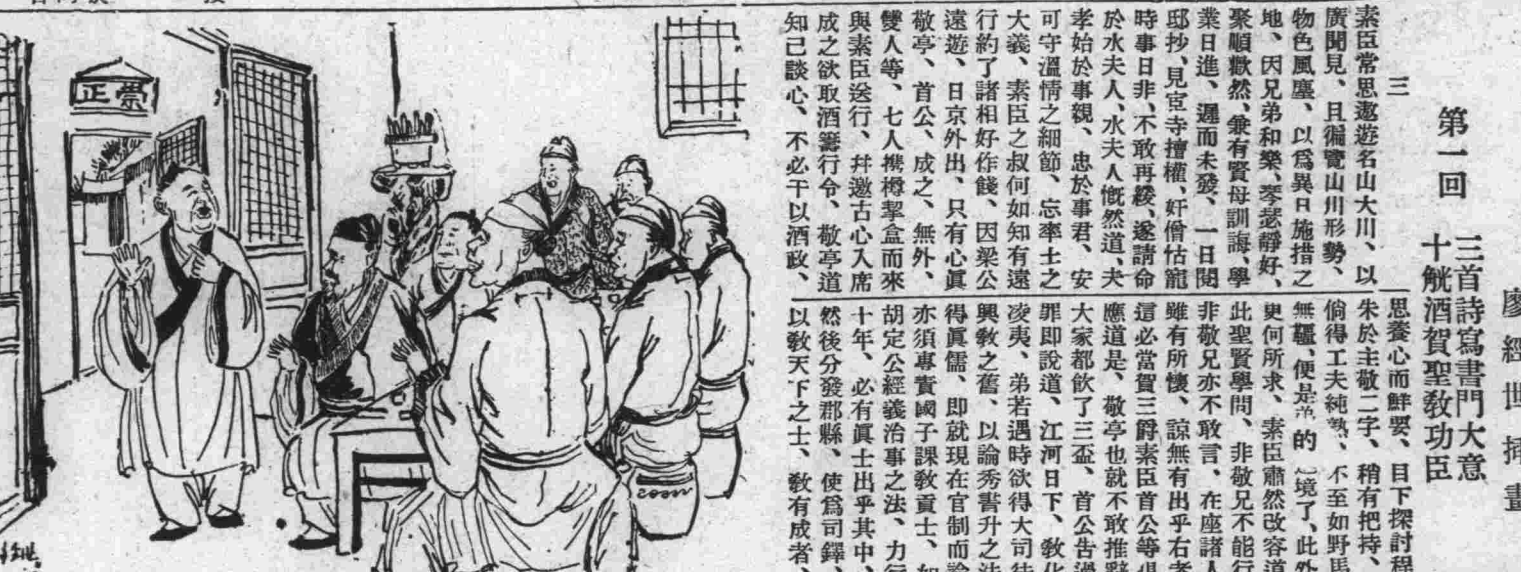 廖經世揷畫
第一回
三首詩寫書門大意
十觥酒賀聖敎功臣
三
素臣常思遨遊名山大川、以
廣聞見、且徧覽山川形勢、
物色風塵、以爲異日施措之
地、因兄弟和樂、琴瑟靜好、
聚順歡然、兼有賢母訓誨、學
業日進、遲而未發、一日閱
邸抄、見宦寺擅權、奸僧怙寵
時事日非、不敢再緩、遂請命
於水夫人、水夫人慨然道、夫
孝始於事親、忠於事君、安
可守溫情之細節、忘率土之
大義、素臣之叔何如知有遠
行約了諸相好作餞、因梁公
遠遊、日京外出、只有心眞
敬亭、首公、成之、無外、
雙人等、七人携樽挈盒而來
與素臣送行、幷邀古心入席
成之欲取酒籌行令、敬亭道
知己談心、不必干以酒政、
思養心而鮮要、目下探討程
朱於主敬二字、稍有把持、
倘得工夫純熟、不至如野馬
無疆、便是弟的 境了、此外
更何所求、素臣肅然改容道
此聖賢學問、非敬兄不能行
非敬兄亦不敢言、在座諸人
雖有所懷、諒無有出乎右者
這必當賀三爵素臣首公等俱
應道是、敬亭也就不敢推辭
大家都飲了三盃、首公告過
罪即說道、江河日下、敎化
凌夷、弟若遇時欲得大司徒
興敎之舊、以論秀書升之法
得眞儒、即就現在官制而論
亦須專責國子課敎貢士、如
胡定公經義治事之法、力行
十年、必有眞士出乎其中、
然後分發郡縣、使爲司鐸、
以敎天下之士、敎有成者、
崇正